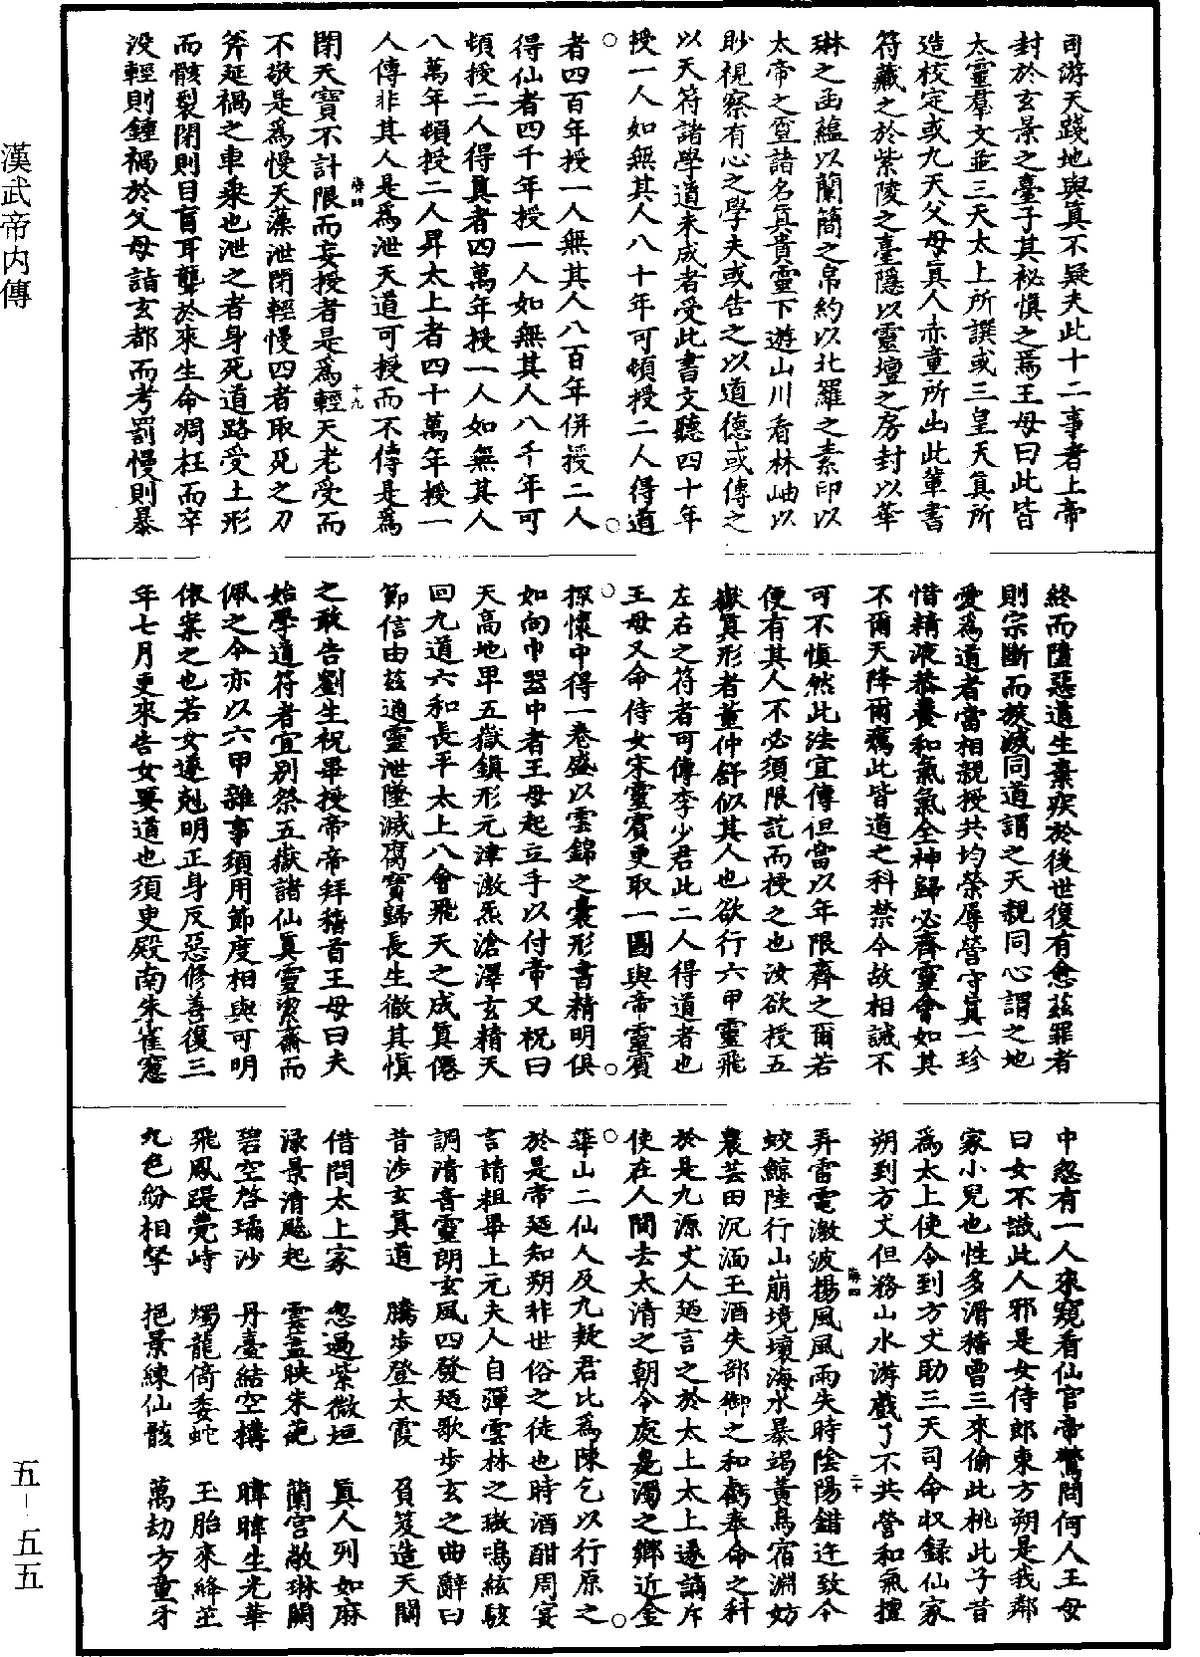 漢武帝内傳
司游天踐地與眞不疑夫此十二事者上帝
封於玄景之臺子其祕愼之焉王母曰此皆
太靈羣文並三天太上所譔或三皇天眞所
造校定或九天父母眞人赤童所出此輩書
符藏之於紫陵之臺隱以靈壇之房封以華
琳之函蘊以蘭簡之帛約以北羅之素印以
太帝之璽諸名眞貴靈下遊山川看林岫以
眇視察有心之學夫或告之以道德或傳之
以天符諸學道未成者受此書文聽四十年
授一人如無其人八十年可頓授二人得道
者四百年授一人無其人八百年併授二人
得仙者四千年授一人如無其人八千年可
頓授二人得眞者四萬年授一人如無其人
八萬年頓授二人昇太上者四十萬年授一
人傳非其人是爲泄天道可授而不傳是爲
閉天寶不計限而妄授者是爲輕天老受而
不敬是爲慢天藻泄閉輕慢四者取死之刀
斧延禍之車乘也泄之者身死道路受土形
而骸裂閉則目盲耳聾於來生命凋枉而卒
没輕則鍾禍於父母詣玄都而考罰慢則暴
終而墮惡道生棄疾於後世復有愆兹罪者
則宗斷而族滅同道謂之天親同心謂之地
愛爲道者當相親授共均榮辱營守眞一珍
惜精液恭養和氣氣全神歸必齊靈會如其
不爾天降爾禍此皆道之科禁今故相誡不
可不愼然此法宜傳但當以年限齊之爾若
便有其人不必須限訖而授之也汝欲授五
嶽眞形者董仲舒似其人也欲行六甲靈飛
左右之符者可傳李少君此二人得道者也
王母又命侍女宋靈賓更取一圖與帝靈賓
探懷中得一卷盛以雲錦之囊形書精明俱
如向巾器中者王母起立手以付帝又祝曰
天高地卑五嶽鎮形元津激炁滄澤玄精天
回九道六和長平太上八會飛天之成眞僊
節信由兹通靈泄墜滅腐寶歸長生徹其愼
之敢告劉生祝畢授帝帝拜稽首王母曰夫
始學道符者宜别祭五嶽諸仙眞靈潔齋而
佩之今亦以六甲雜事須用節度相與可明
依案之也若女遂尅明正身反惡修善復三
年七月更來告女要道也須㬰殿南朱雀窓
中忽有一人來窺看仙官帝驚問何人王母
曰女不識此人邪是女侍郎東方朔是我鄰
家小兒也性多滑稽曾三來偷此桃此子昔
爲太上使令到方丈助三天司命收録仙家
朔到方丈但務山水游戲了不共營和氣擅
弄雷電激波揚風風雨失時陰陽錯迕致令
蛟鯨陸行山崩境壞海水暴竭黃鳥宿淵妨
農芸田沉湎玉酒失部御之和虧奉命之科
於是九源丈人廼言之於太上太上遂謫斥
使在人間去太清之朝令處是濁之鄉近金
華山二仙人及九疑君比爲陳乞以行原之
於是帝廼知朔非世俗之徒也時酒酣周宴
言請粗畢上元夫人自彈雲林之璈鳴絃駭
調清音靈朗玄風四發廼歌步玄之曲辭曰
昔涉玄眞道　騰步登太霞　負笈造天關
借問太上家　忽過紫微垣　眞人列如麻
渌景清飈起　雲盖映朱葩　蘭宫敞琳闕
碧空啓璚沙　丹臺結空構　暐暐生光華
飛鳳踶甍峙　燭龍倚委蛇　玉胎來絳芝
九色紛相拏　挹景練仙骸　萬劫方童牙
海四
十九
海四
二十
五－五五